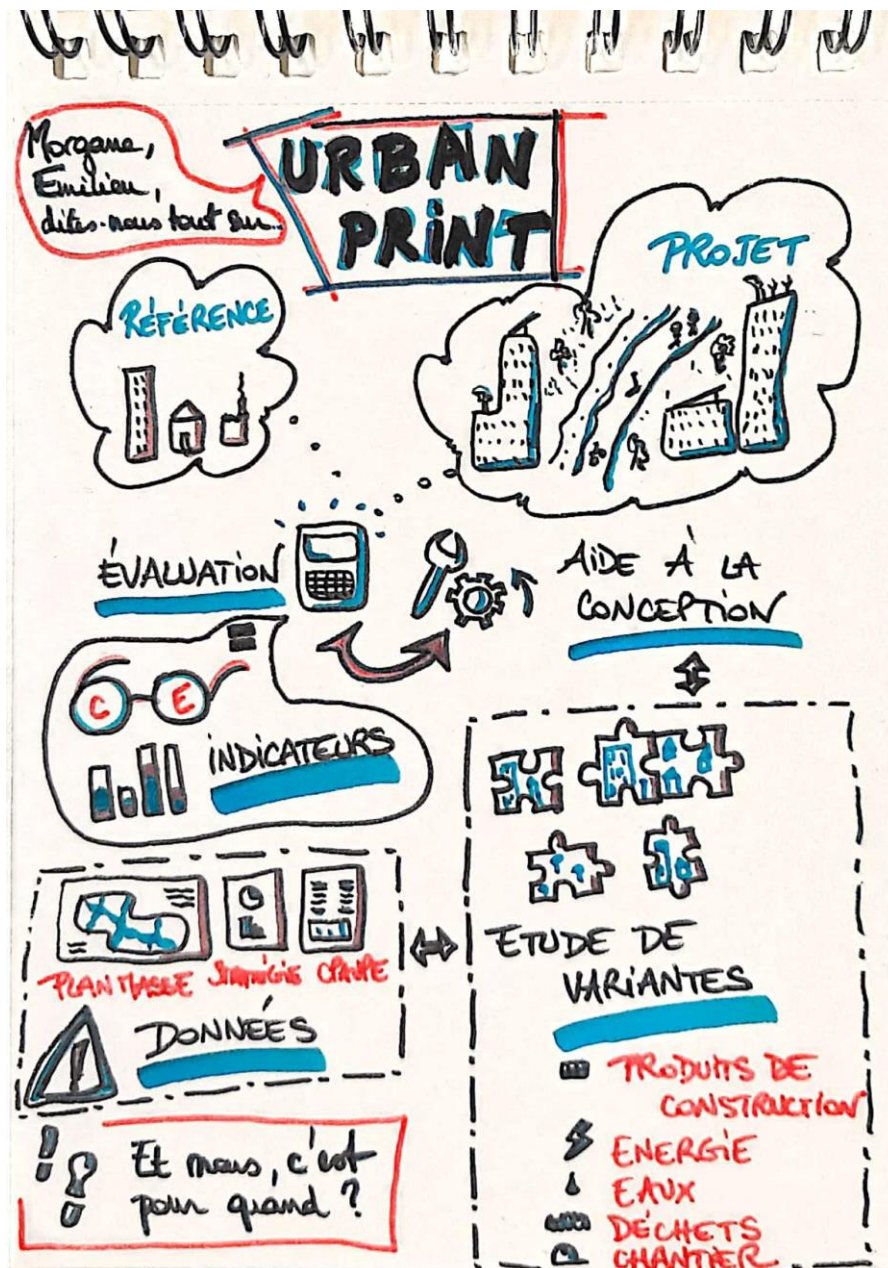 Morgane,
Emilien,
dites-nous tout sur...
URBAN
PRINT
PROJET
RÉFÉRENCE
ÉVALUATION
AIDE À LA
CONCEPTION
C E
INDICATEURS
PLAN MASSE
DONNÉES
ETUDE DE
VARIANTES
PRODUITS DE
CONSTRUCTION
ENERGIE
EAUX
DÉCHETS
CHANTIER
Et nous, c'est
pour quand ?